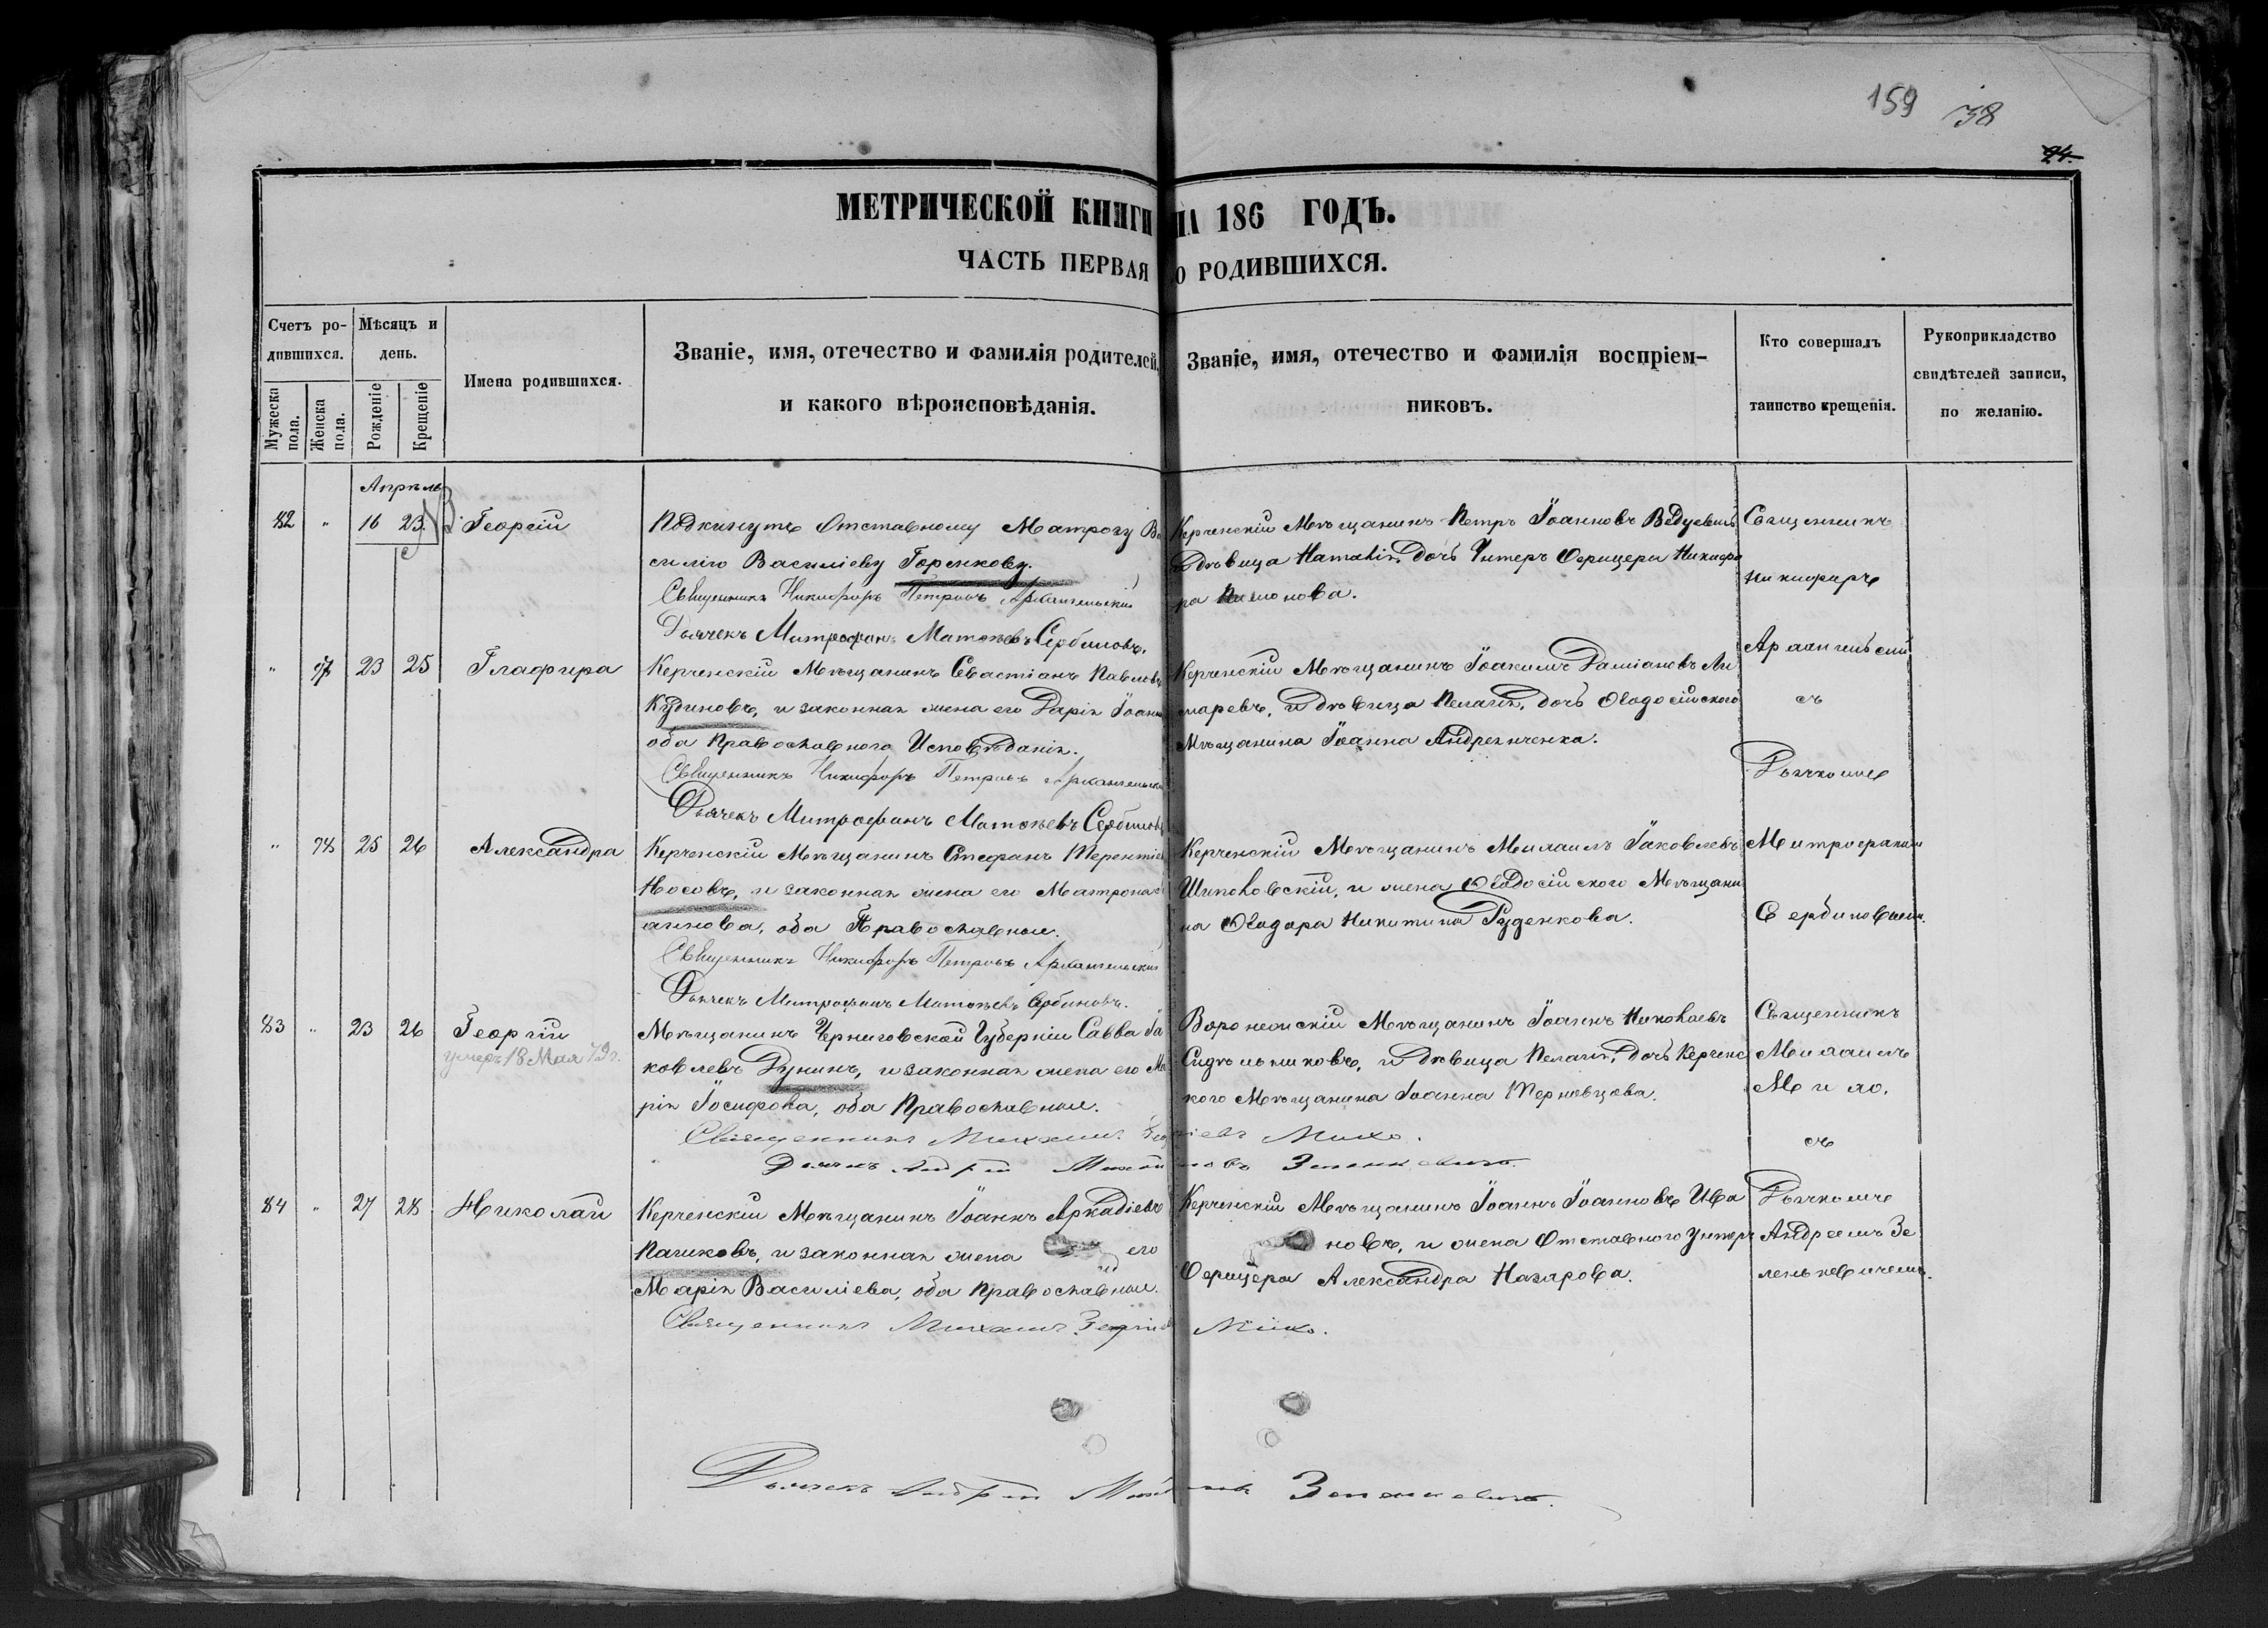 159 38
24.
МЕТРИЧЕСКОЙ КНИГИ НА 186 ГОДЪ.
ЧАСТЬ ПЕРВАЯ О РОДИВШИХСЯ.
Счетъ родившихся.
Мужеска пола.
Женска пола.
Мѣсяцъ и день.
Рожденіе
Крещеніе
Имена родившихся.
Званіе, имя, отечество и фамилія родителей,
и какого вѣроисповѣданія.
Званіе, имя, отечество и фамилія воспріем-
никовъ.
Кто совершалъ
таинство крещенія.
Рукоприкладство
свидѣтелей записи,
по желанію.
Апрѣль
82 " 16 23. Георгій
Подкинутъ Отставному Матрозу Ва
силію Василіеву Горенкову.
Священникъ Никифоръ Петровъ Архангельскій
Дьячекъ Митрофанъ Матвѣевъ Сербиновъ.
Керченскій Мѣщанинъ Петръ Іоанновъ
Дѣвица Наталія, дочь Унтеръ Офицера Никифо
ра
Священникъ
Никифоръ
Архангельскій
съ
Дьячкомъ
Митрофаномъ
Сербиновымъ.
" 77 23 25 Глафира
Керченскій Мѣщанинъ Севастіанъ Павловъ
Кудиновъ, и законная жена его Дарія Іоанно
оба Православного Исповѣданія.
Священникъ Никифоръ Петровъ Архангельскій
Дьячекъ Митрофанъ Матвѣевъ Сербиновъ
Керченскій Мѣщанинъ Іоакимъ Даміановъ Ли
маревъ, и дѣвица Пелагія, дочь Ѳеодосійского
Мѣщанина Іоанна Андреиченка.
" 78 25 26 Александра
Керченскій Мѣщанинъ Стефанъ Терентіев
Носовъ, и законная жена его Матрона
аннова, оба Православные.
Священникъ Никифоръ Петровъ Архангельскій
Дьячекъ Митрофанъ Матвѣевъ Сербиновъ.
Керченскій Мѣщанинъ Михаилъ Іаковлевъ
Шиповскій, и жена Ѳеодосійского Мѣщани
на Ѳеодора Никитина Руденкова.
83 " 23 26 Георгій
умеръ 18 Мая 79г.
Мѣщанинъ Черниговской Губерніи Савва Іа
ковлевъ Дунинъ, и законная жена его Ма
рія Іосифова, оба Православные.
Священникъ Михаилъ Георгіевъ Михо.
Дьячекъ Андрей Зеленкевичъ.
Воронежскій Мѣщанинъ Іоаннъ Николаевъ
Сидѣльниковъ, и дѣвица Пелагія, дочь Керченс
кого Мѣщанина Іоанна Терновцова.
Священникъ
Михаилъ
Михо.
съ
Дьячкомъ
Андреемъ Зе
ленкевичемъ.
84 " 27 28 Николай
Керченскій Мѣщанинъ Іоаннъ Аркадіевъ
Пашковъ, и законная жена его
Марія Василіева, оба Православные.
Священникъ Михаилъ Георгіевъ Михо.
Керченскій Мѣщанинъ Іоаннъ Іоанновъ Ива
новъ, и жена Отставного Унтеръ
Офицера Александра Назарова.
Дьячекъ Андрей Зеленкевичъ.